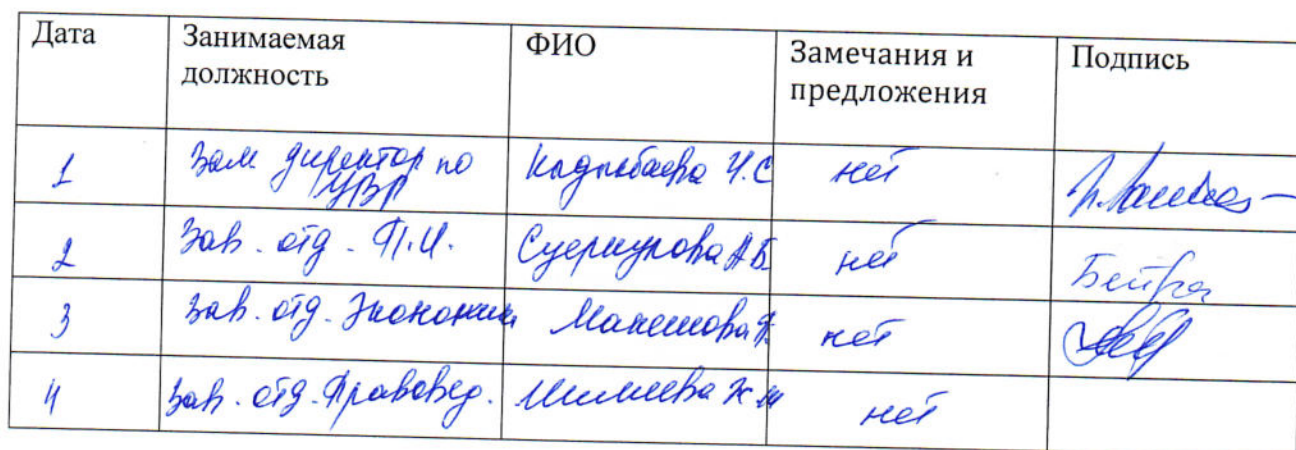 Дата Занимаемая должность ФИО Замечания и предложения Подпись
1 Зам директор по УВР Кадырбаева Ч.С нет
2 Зав. отд. - П.И. А Б нет
3 Зав. отд. Экономики Макешова нет
4 Зав. отд. Правовед. Ж Ш нет